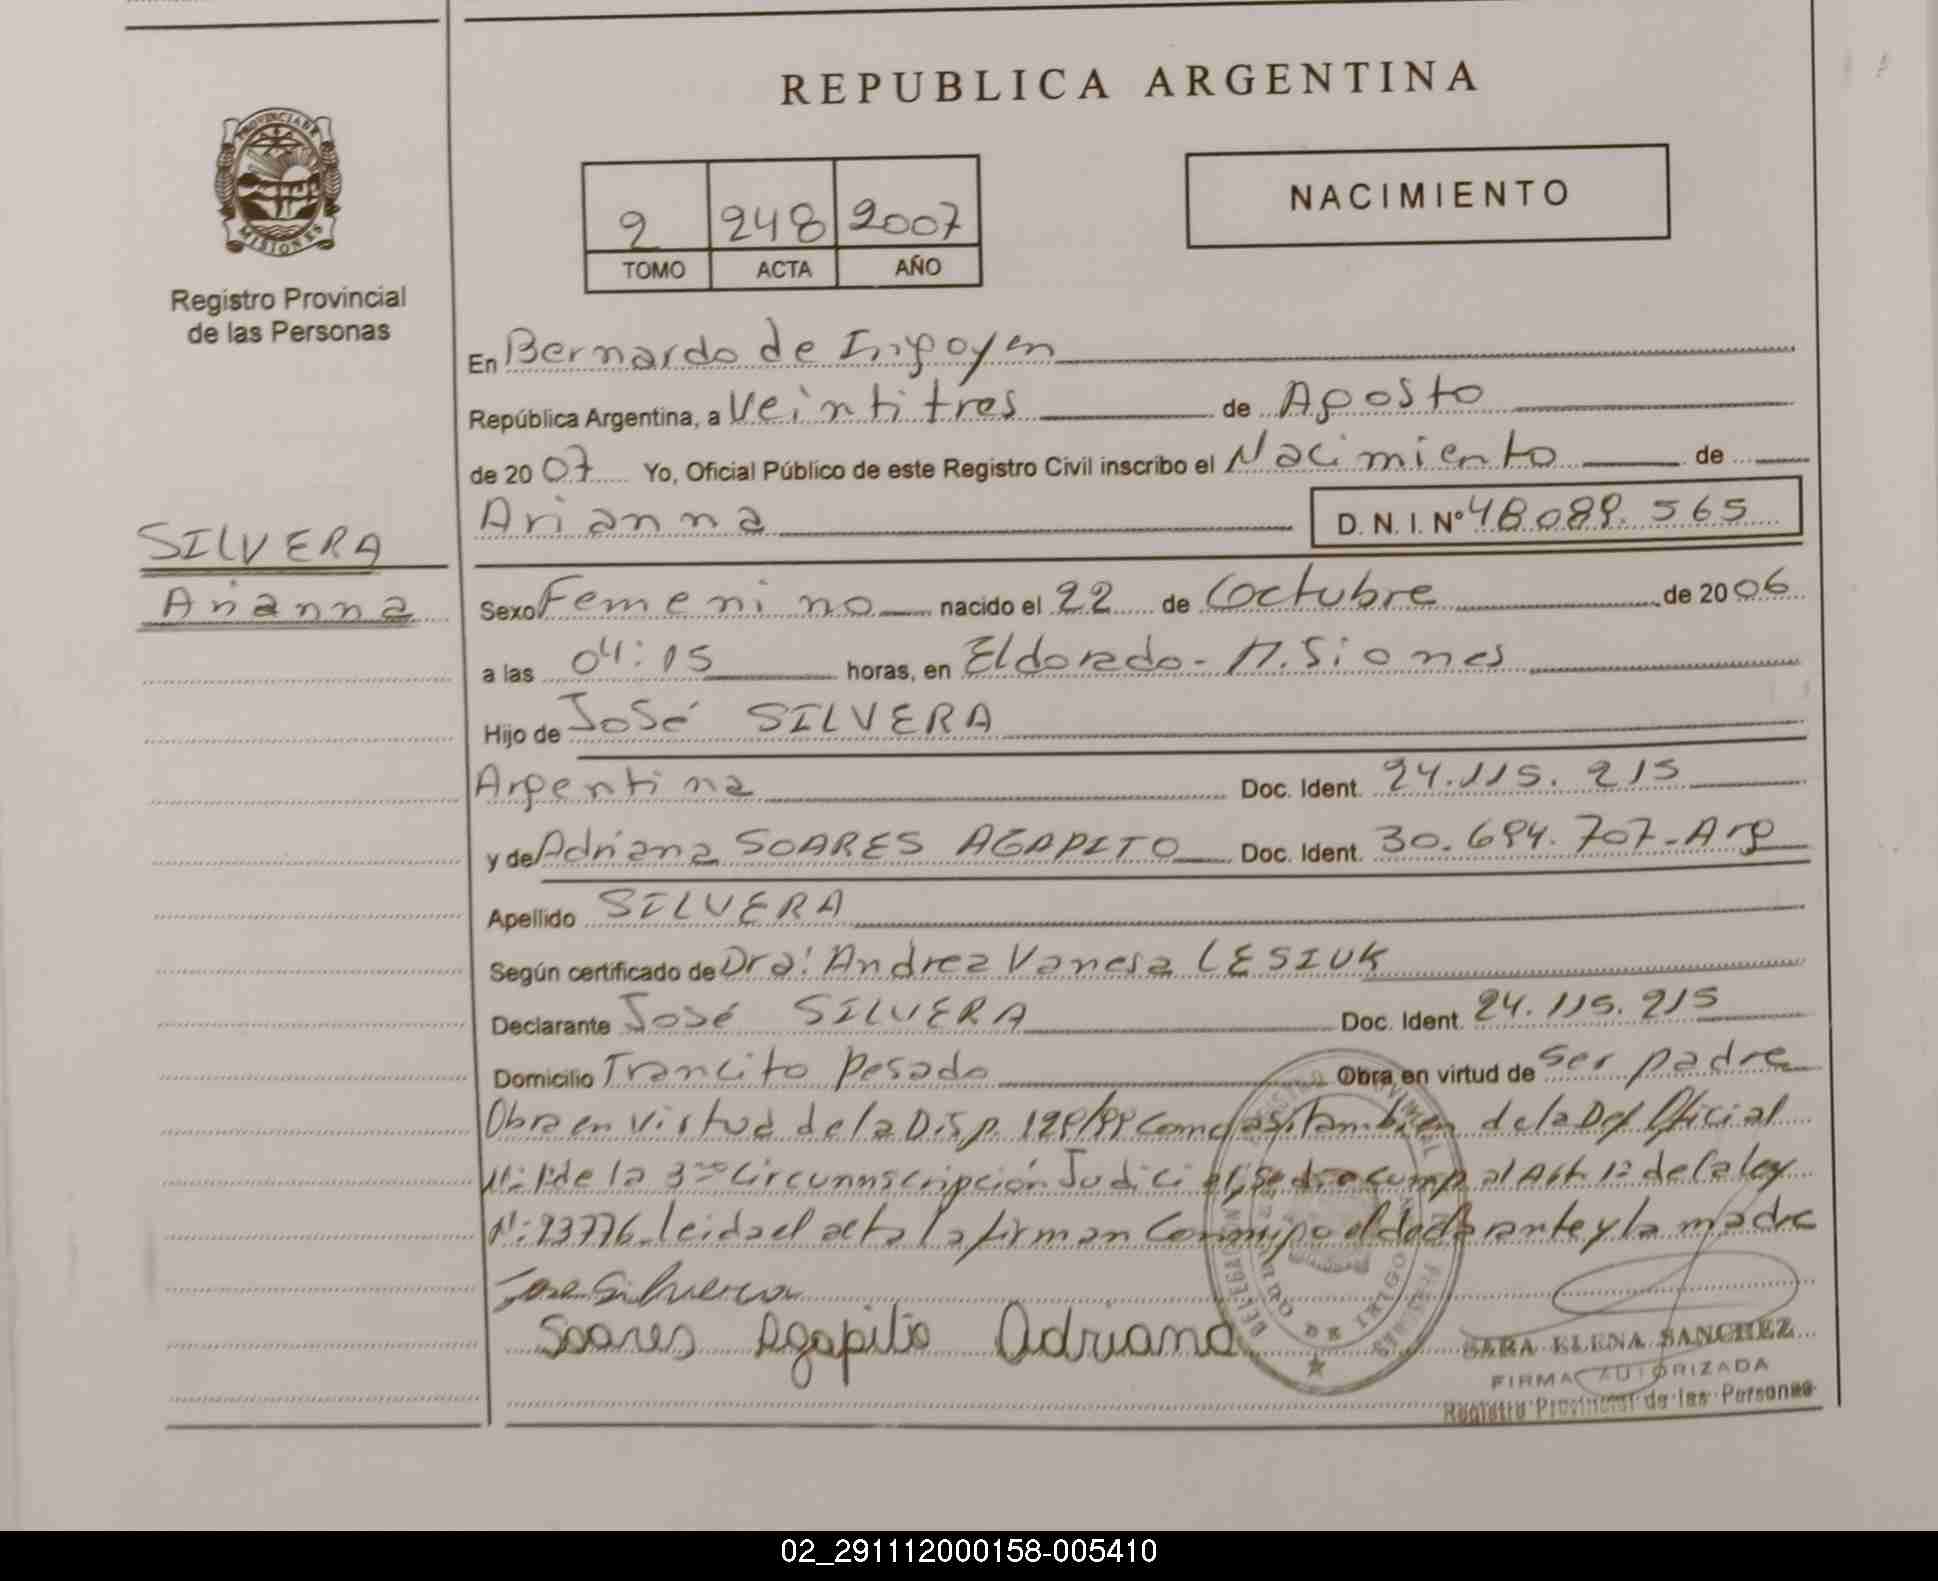 REPUBLICA ARGENTINA
PROVINCIA DE
MISIONES
Registro Provincial
de las Personas
2 248 2007
TOMO ACTA AÑO
NACIMIENTO
En Bernardo de Irigoyen
República Argentina, a Veintitres de Agosto
de 2007 Yo, Oficial Público de este Registro Civil inscribo el Nacimiento de
SILVERA
Arianna
Arianna D. N. I. Nº 48.089.565
Sexo Femenino nacido el 22 de Octubre de 2006
a las 04:15 horas, en Eldorado - Misiones
Hijo de José SILVERA
Argentina Doc. Ident. 24.115.215
y de Adriana SOARES AGAPITO Doc. Ident. 30.694.707 - Arg
Apellido SILVERA
Según certificado de Dra: Andrea Vanesa LESIUK
Declarante José SILVERA Doc. Ident. 24.115.215
Domicilio Trancito Pesado Obra en virtud de ser padre
Obra en virtud de la Disp. como asi tambien de la Def Oficial
de la 3ra Circunnscripción Judicial, se dio cump al Art. 1º de la ley
Nº: 23776. leida el acta la firman conmigo el declarante y la madre
Jose Silvera
Soares Agapito Adriana
SARA ELENA SANCHEZ
FIRMA AUTORIZADA
Registro Provincial de las Personas
02_291112000158-005410